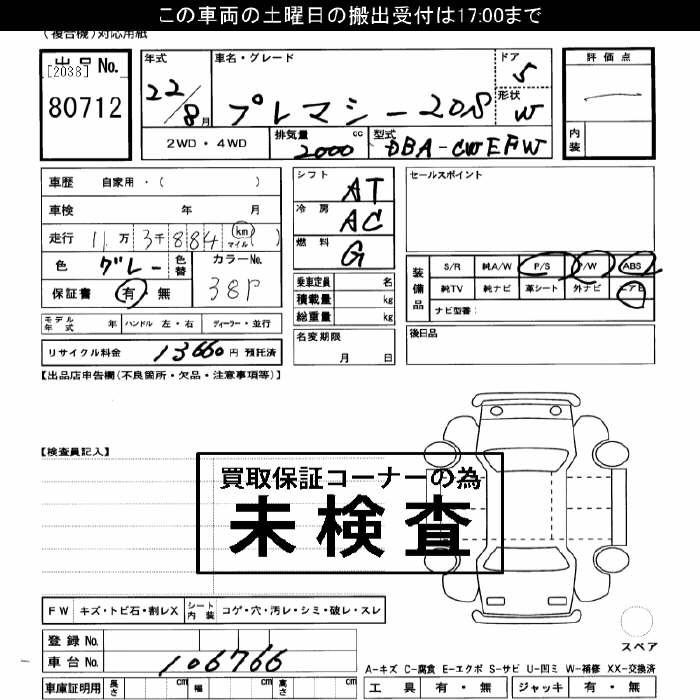 この車両の土曜日の搬出受付は17:00まで
(複合機)対応用紙
出品 No. [2038]
80712
年式 22/8月
車名・グレード プレマシー 20S
ドア 5
形状 W
評価点
内装
2WD・4WD
排気量 2000 cc
型式 DBA-CWEFW
車歴 自家用・( )
車検 年 月
走行 11万 3千 884 km マイル ( )
色 グレー 色替 カラーNo. 38P
保証書 有・無
シフト AT
冷房 AC
燃料 G
乗車定員 名
積載量 kg
総重量 kg
セールスポイント
装備品
S/R 純A/W P/S P/W ABS
純TV 純ナビ 革シート 外ナビ エアB
ナビ型番:
モデル年式 年 ハンドル 左・右 ディーラー・並行
リサイクル料金 13660 円 預託済
名変期限 月 日
後日品
【出品店申告欄(不良箇所・欠品・注意事項等)】
【検査員記入】
買取保証コーナーの為
未検査
FW キズ・トビ石・割レX シート内装 コゲ・穴・汚レ・シミ・破レ・スレ
登録 No.
車台 No. 106766
車庫証明用 長さ cm 幅 cm 高さ cm
スペア
A-キズ C-腐食 E-エクボ S-サビ U-凹ミ W-補修 XX-交換済
工具 有・無 ジャッキ 有・無